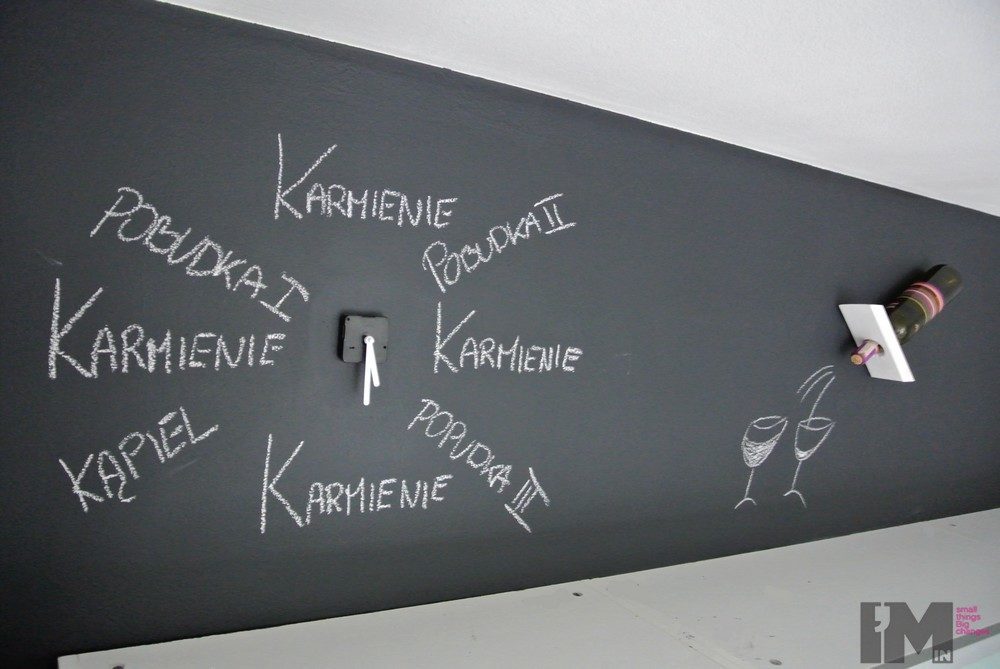 KARMIENIE
POBUDKA I
POBUDKA II
KARMIENIE
KARMIENIE
KĄPIEL
POPUDKA III
KARMIENIE
I'M
IN
small
things
Big
changes